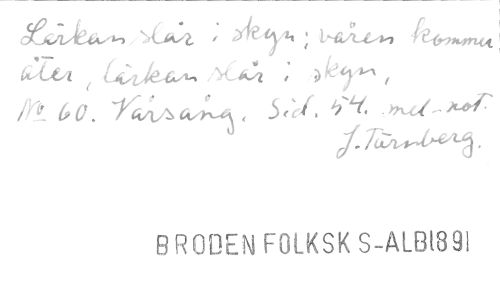 Lärkan slår i skyn; våren kommer
åter, lärkan slår i skyn,
No 60. Vårsång. Sid. 54. med not.
J. Türnberg.
BRODEN FOLKSK S-ALB1891